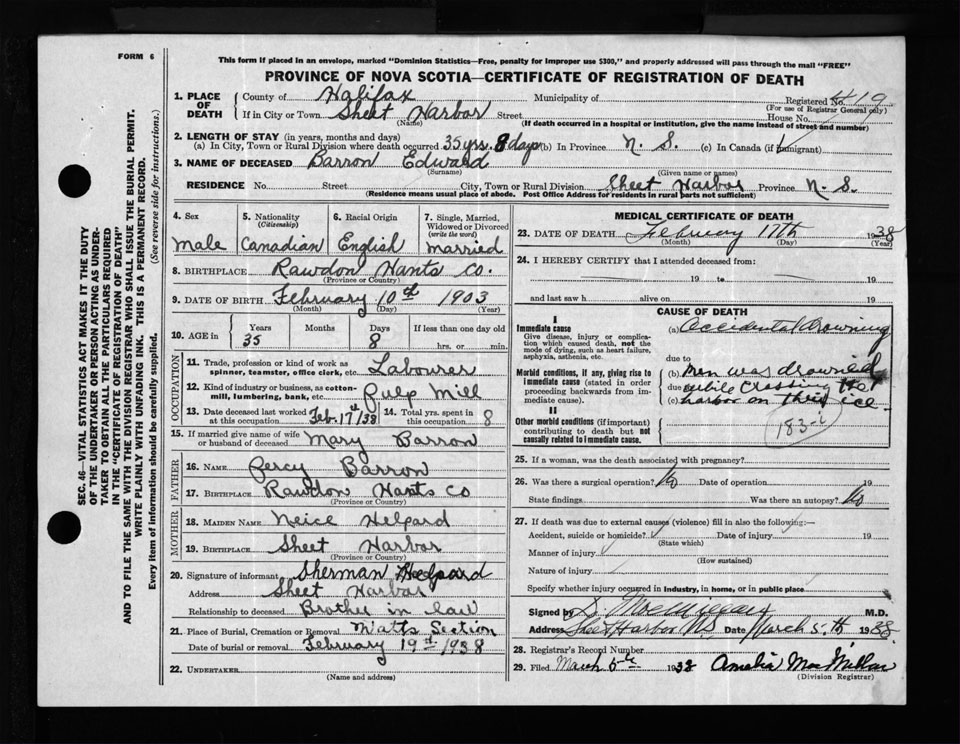 FORM 6
This form if placed in an envelope, marked "Dominion Statistics—Free, penalty for improper use $300," and properly addressed will pass through the mail "FREE"
PROVINCE OF NOVA SCOTIA—CERTIFICATE OF REGISTRATION OF DEATH
SEC. 46—VITAL STATISTICS ACT MAKES IT THE DUTY
OF THE UNDERTAKER OR PERSON ACTING AS UNDER-
TAKER TO OBTAIN ALL THE PARTICULARS REQUIRED
IN THE "CERTIFICATE OF REGISTRATION OF DEATH"
AND TO FILE THE SAME WITH THE DIVISION REGISTRAR WHO SHALL ISSUE THE BURIAL PERMIT.
WRITE PLAINLY WITH UNFADING INK. THIS IS A PERMANENT RECORD.
Every item of information should be carefully supplied. (See reverse side for instructions.)
1. PLACE OF DEATH County of Halifax Municipality of Registered No. 419
(For use of Registrar General only)
If in City or Town Sheet Harbor Street House No.
(Name) (If death occurred in a hospital or institution, give the name instead of street and number)
2. LENGTH OF STAY (in years, months and days)
(a) In City, Town or Rural Division where death occurred 35 yrs. 8 days (b) In Province N. S. (c) In Canada (if immigrant)
3. NAME OF DECEASED Barron Edward
(Surname) (Given name or names)
RESIDENCE No. Street City, Town or Rural Division Sheet Harbor Province N. S.
(Residence means usual place of abode. Post Office Address for residents in rural parts not sufficient)
4. Sex 5. Nationality (Citizenship) 6. Racial Origin 7. Single, Married, Widowed or Divorced (write the word)
Male Canadian English Married
8. BIRTHPLACE Rawdon Hants Co.
(Province or Country)
9. DATE OF BIRTH February 10th 1903
(Month) (Day) (Year)
10. AGE in Years Months Days If less than one day old
35 8 hrs. or min.
OCCUPATION
11. Trade, profession or kind of work as spinner, teamster, office clerk, etc. Labourer
12. Kind of industry or business, as cotton-mill, lumbering, bank, etc. Pulp Mill
13. Date deceased last worked at this occupation Feb. 17th/38 14. Total yrs. spent in this occupation 8
15. If married give name of wife or husband of deceased Mary Barron
FATHER
16. NAME Percy Barron
17. BIRTHPLACE Rawdon Hants Co
(Province or Country)
MOTHER
18. MAIDEN NAME Neice Helpard
19. BIRTHPLACE Sheet Harbor
(Province or Country)
20. Signature of informant Sherman Helpard
Address Sheet Harbor
Relationship to deceased Brother in law
21. Place of Burial, Cremation or Removal Watts Section
Date of burial or removal February 19th 1938
22. UNDERTAKER
(Name and address)
MEDICAL CERTIFICATE OF DEATH
23. DATE OF DEATH February 17th 1938
(Month) (Day) (Year)
24. I HEREBY CERTIFY that I attended deceased from:
19 to 19
and last saw h alive on 19
CAUSE OF DEATH
I
Immediate cause
Give disease, injury or complication which caused death, not the mode of dying, such as heart failure, asphyxia, asthenia, etc.
(a) Accidental drowning
due to
Morbid conditions, if any, giving rise to immediate cause (stated in order proceeding backwards from immediate cause).
(b) Men was drowned
due while crossing the
(c) harbor on their ice.
II
Other morbid conditions (if important) contributing to death but not causally related to immediate cause.
183-c
25. If a woman, was the death associated with pregnancy?
26. Was there a surgical operation? No Date of operation 19
State findings Was there an autopsy? No
27. If death was due to external causes (violence) fill in also the following:—
Accident, suicide or homicide? Date of injury 19
(State which)
Manner of injury
(How sustained)
Nature of injury
Specify whether injury occurred in industry, in home, or in public place
Signed by M.D.
Address Sheet Harbor N.S. Date March 5.th 1938.
28. Registrar's Record Number
29. Filed March 5th 1938 Amelia MacMillan
(Division Registrar)